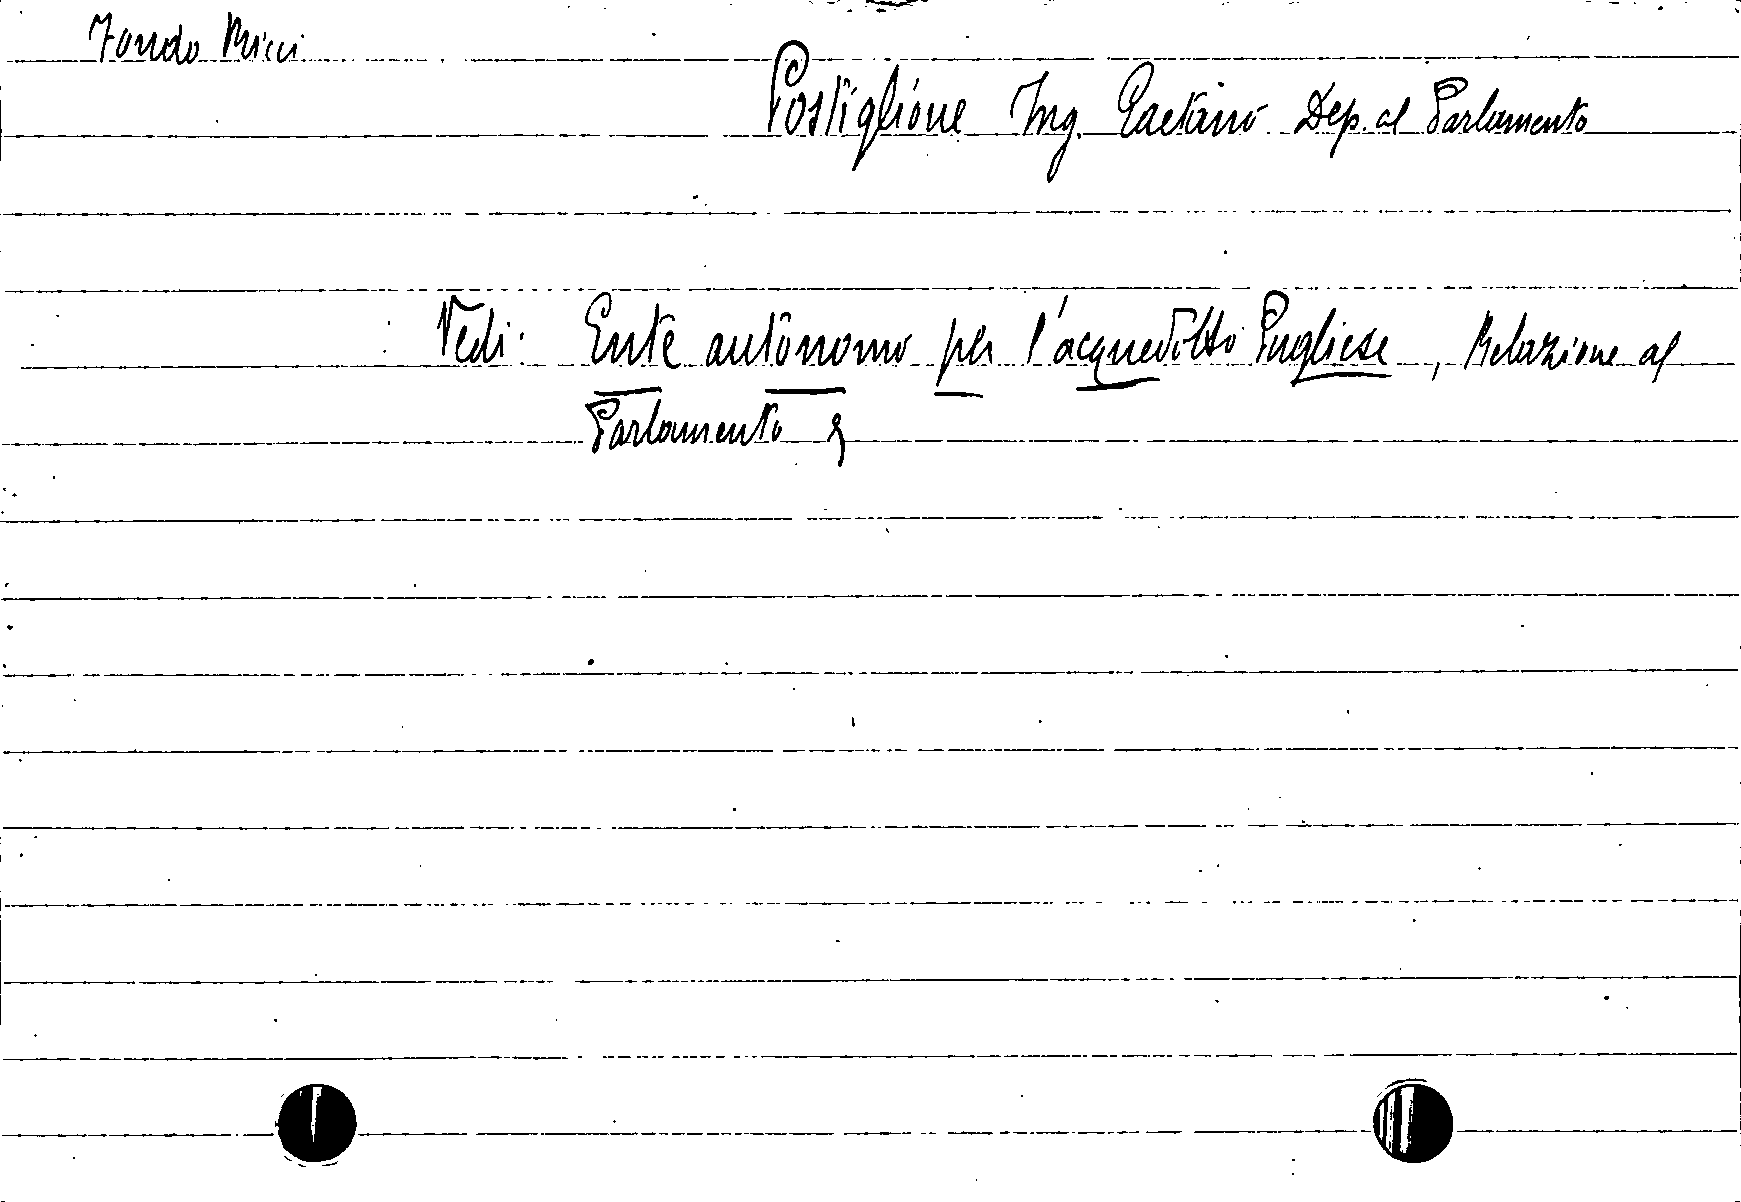 Fondo Ricci
Postiglione Ing. Gaetano Dep. al Parlamento
Vedi: Ente autonomo per l'acquedotto Pugliese, Relazione al
Parlamento